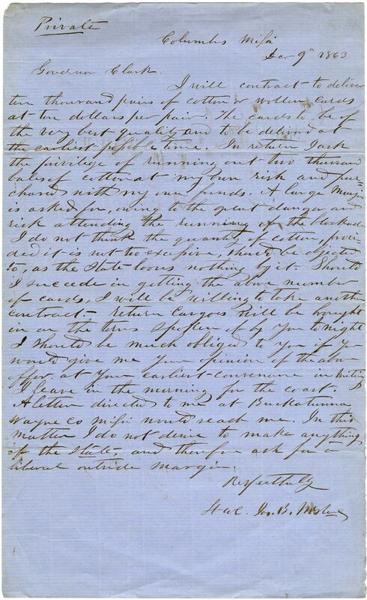 Private
Columbus Missi
Dec 9th 1863
Governor Clark
I will contract to deliver
ten thousand pairs of cotton & wollen cards
at ten dollars per pair. The cards to be of
the very best quality and to be delivered at
the earliest possible time. In return I ask
the privilege of running out two thousand
bales of cotton at my own risk and pur
chased with my own funds. A large Margin
is asked for, owing to the great danger and
risk attending the running of the blockade
I do not think the quantity of cotton, provi
ded it is not too excessive, should be objected
to, as the State looses nothing by it. Should
I succede in getting the above number
of cards, I will be willing to take another
contract - Return Cargoes will be bought
in on the terms spoken of by you to night
I should be much obliged to you if you
would give me your opinion of the above
offer, at your earliest convenience in writing
I leave in the morning for the coast.
A letter directed to me at Buckatunna
Wayne Co Missi would reach me. In this
matter I do not desire to make anything
off the State, and therefor ask for a
liberal outside margin.
Respectfully
B.